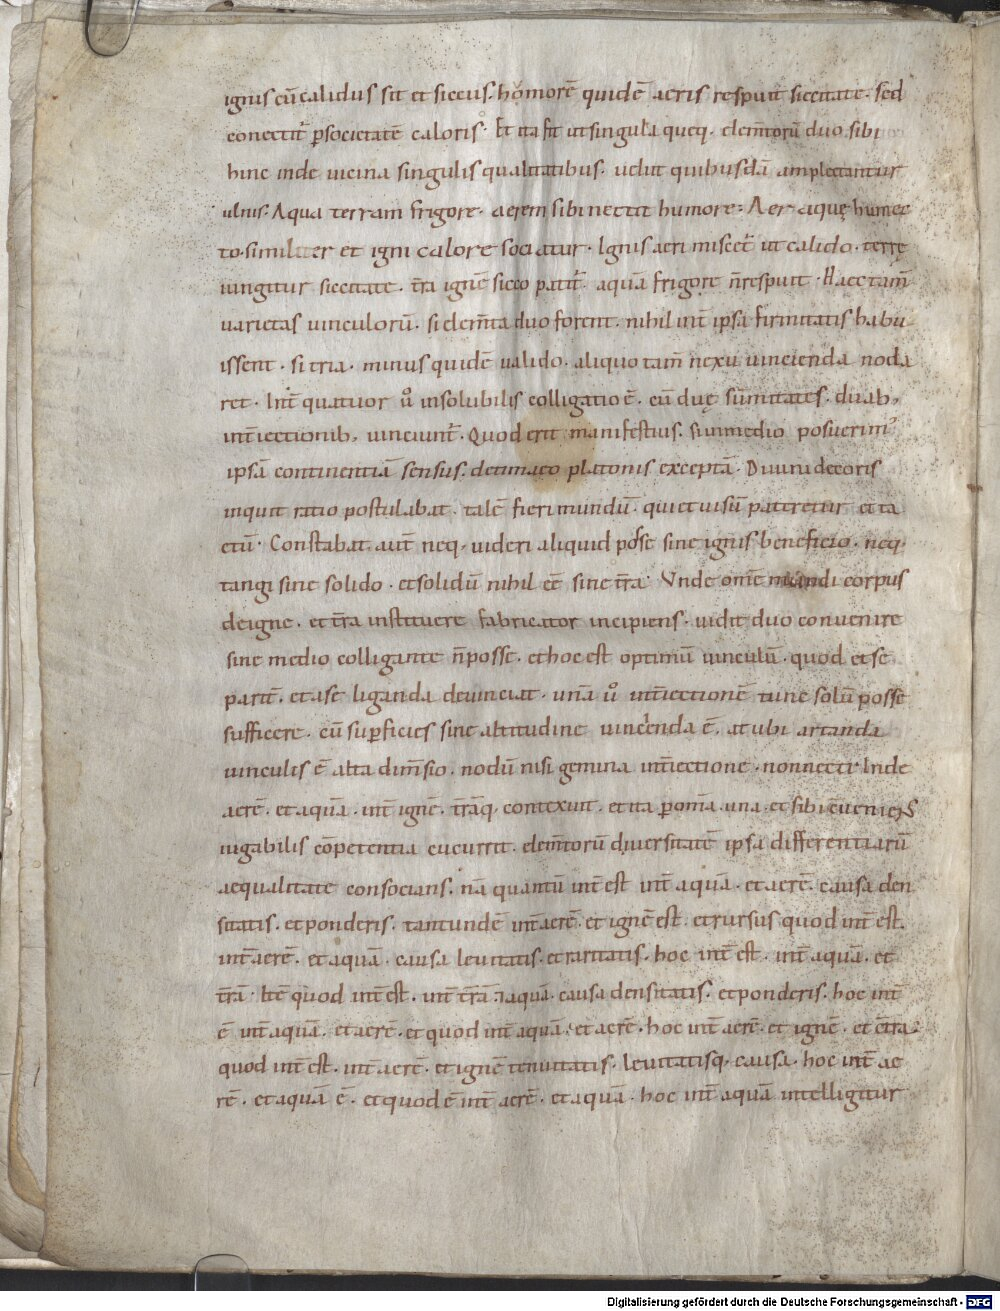 ignis cū calidus sit et siccus. homorē quidē aeris respuit siccitate. sed
conectit̄ p̄societatē caloris. Et ita fit ut singula queq. elem̄torū duo sibi
hinc inde uicina singulis qualitatibus. uelut quibusdā amplectantur
ulnis. Aqua terram frigore. aerem sibi nectit humore. Aer aquę humec
to. similiter et igni calore sociatur. Ignis aeri miscet̄ ut calido. terrę
iungitur siccitate. t̄ra ignē sicco patit̄. aquā frigore n̄ respuit. Haec tam̄
uarietas uinculorū. si elem̄ta duo forent. nihil int̄ ipsa firmitatis habu
issent. si tria. minus quidē ualido. aliquo tam̄ nexu uincienda noda
ret. Int̄ quatuor u͛o insolubilis colligatio ē. cū duę sūmitates. duab,
int̄iectionib, uinciunt̄. Quod erit manifestius. si in medio posuerim᾽
ipsā continentiā sensus. de timaeo platonis exceptā. Diuini decoris
inquit ratio postulabat. talē fieri mundū. qui et uisū pateretur et ta
ctū. Constabat aut̄ neq. uideri aliquid posse sine ignis beneficio. neq.
tangi sine solido. et solidū nihil eē sine t̄ra. Vnde om̄e mundi corpus
de igne. et t̄ra instituere fabricator incipiens. uidit duo conuenire
sine medio colligante n̄ posse. et hoc est optimū uinculū. quod et se
parit̄. et a se liganda deuinciat. unā u͛o int̄iectionē tunc solū posse
sufficere. cū sup̄ficies sine altitudine uincienda ē. at ubi artanda
uinculis ē alta dim̄sio. nodū nisi gemina int̄iectione. non necti. Inde
aerē. et aquā. int̄ ignē. t̄rāq. contexuit. et ita p̄ om̄ia una. et sibi cueniens
iugabilis cōpetentia cucurrit. elem̄torū diuersitatē ipsa differentiarū
aequalitate consocians. nā quantū int̄est int̄ aquā. et aerē. causa den
sitatis. et ponderis. tantundē int̄ aerē. et ignē est. et rursus quod int̄est.
int̄ aerē. et aquā. causa leuitatis. et raritatis. hoc int̄est. int̄ aquā. et
t̄rā. Itē quod int̄est. int̄ t̄rā ⁊ aquā. causa densitatis. et ponderis. hoc int̄
ē int̄ aquā. et aerē. et quod int̄ aquā. et aerē. hoc int̄ aerē. et ignē. et ct̄ra
quod int̄est. int̄ aerē. et ignē tenuitatis. leuitatisq. causa. hoc int̄ ae
rē. et aquā ē. et quod ē int̄ aerē. et aquā. hoc int̄ aquā intelligitur